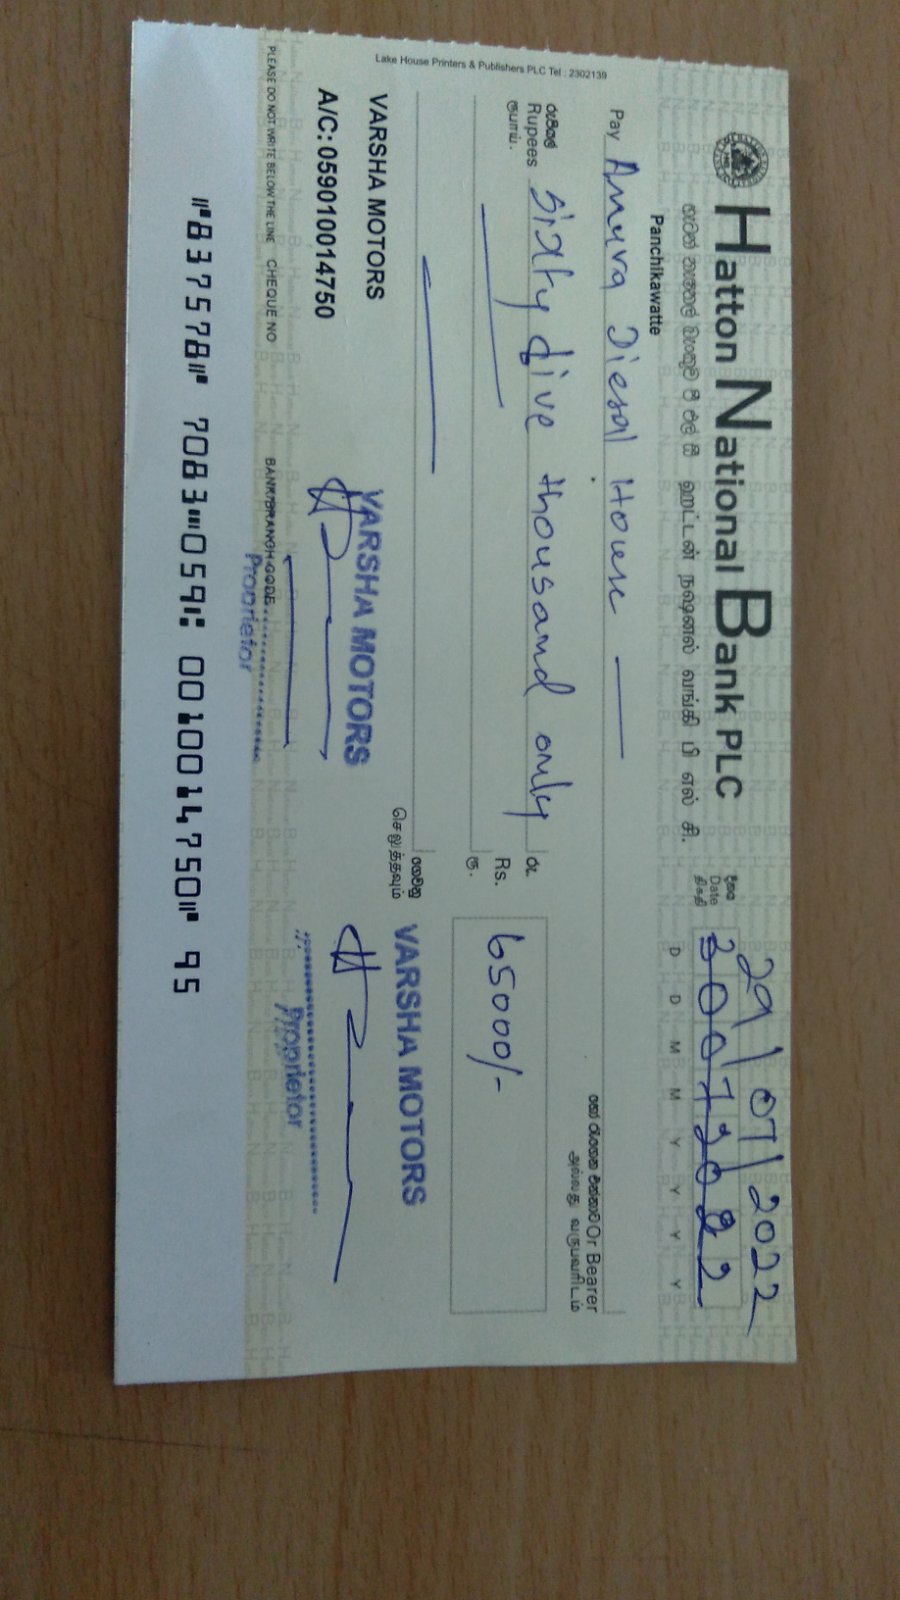 Lake House Printers & Publishers PLC Tel : 2302139
HATTON NATIONAL BANK PLC
ஹட்டன் நஷனல் வங்கி பி எல் சி.
Panchikawatte
29/07/2022
දිනය
Date
திகதி
30072022
D D M M Y Y Y Y
Pay Anura Diesal House
හෝ රැගෙන එන්නාට Or Bearer
அல்லது வருபவரிடம்
රුපියල්
Rupees Sixty five thousand only
ரூபாய்.
රු.
Rs. 65000/-
ரூ.
ගෙවනු
செலுத்தவும்
VARSHA MOTORS
A/C: 059010014750
VARSHA MOTORS
Proprietor
VARSHA MOTORS
Proprietor
PLEASE DO NOT WRITE BELOW THE LINE CHEQUE NO BANK/BRANCH CODE
⑈837578⑈ 7083⑉059⑆ 0010014750⑈ 95